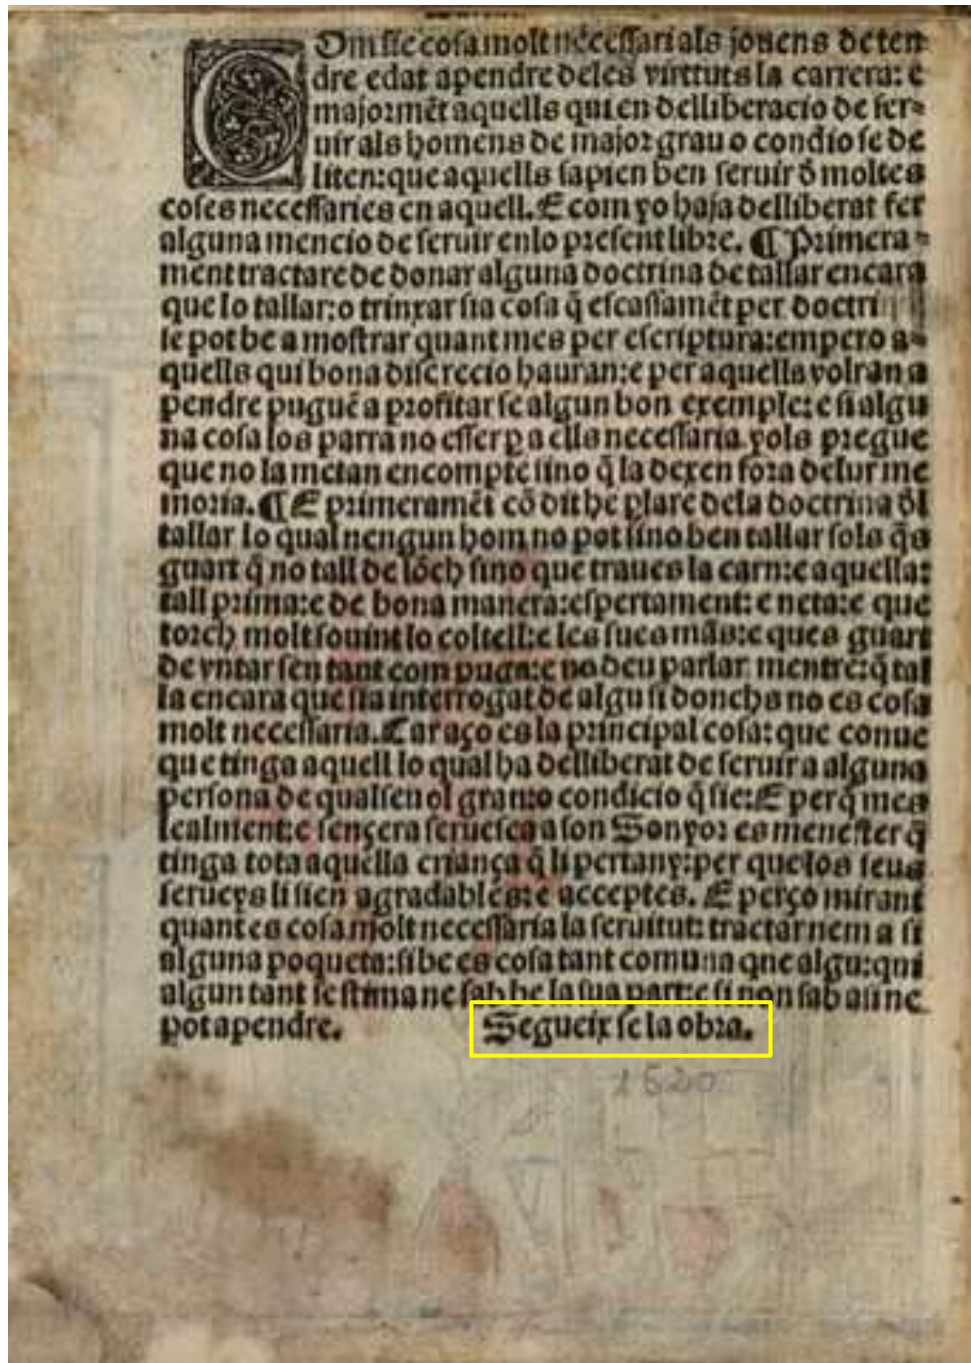 COm sie cosa molt necessari als jouens de ten
dre edat apendre deles virttuts la carrera: e
majormēt aquells qui en delliberacio de ser-
uir als homens de major grau o condio se de
liten: que aquells sapien ben seruir d̄ moltes
coses necessaries en aquell. E com yo haja delliberat fer
alguna mencio de seruir enlo present libre. ¶ Primera-
ment tractare de donar alguna doctrina de tallar encara
que lo tallar: o trinxar sia cosa q̄ escassamēt per doctri
se pot be a mostrar quant mes per escriptura: empero a-
quells qui bona discrecio hauran: e per aquella volran a
pendre puguē a profitar se algun bon exemple: e si algu
na cosa los parra no esser ꝑ a ells necessaria yols pregue
que no la metan en compte sino q̄ la dexen fora de lur me
moria. ¶ E primeramēt cō dit he ꝑlare dela doctrina d̄l
tallar lo qual nengun hom no pot sino ben tallar sols q̄s
guart q̄ no tall de lōch sino que traues la carn: e aquella:
tall prima: e de bona manera: espertament: e neta: e que
torch molt souint lo coltell: e les sues mās: e ques guart
de vntar sen tant com puga: e no deu parlar mentre: q̄ tal
la encara que sia interrogat de algu si donchs no es cosa
molt necessaria. Car aço es la principal cosa: que conue
que tinga aquell lo qual ha delliberat de seruir a alguna
persona de qualseuol grau: o condicio q̄ sie: E perq̄ mes
lealment: e sençera seruesca a son Senyor es menester q̄
tinga tota aquella criança q̄ li pertany: per que los seus
serueys li sien agradables: e acceptes. E perço mirant
quant es cosa molt necessaria la seruitut: tractar nem a si
alguna poqueta: si be es cosa tant comuna que algu: qui
algun tant se stima ne sab be la sua part: e si non sab aii ne
pot apendre. Segueix se la obra.
1520